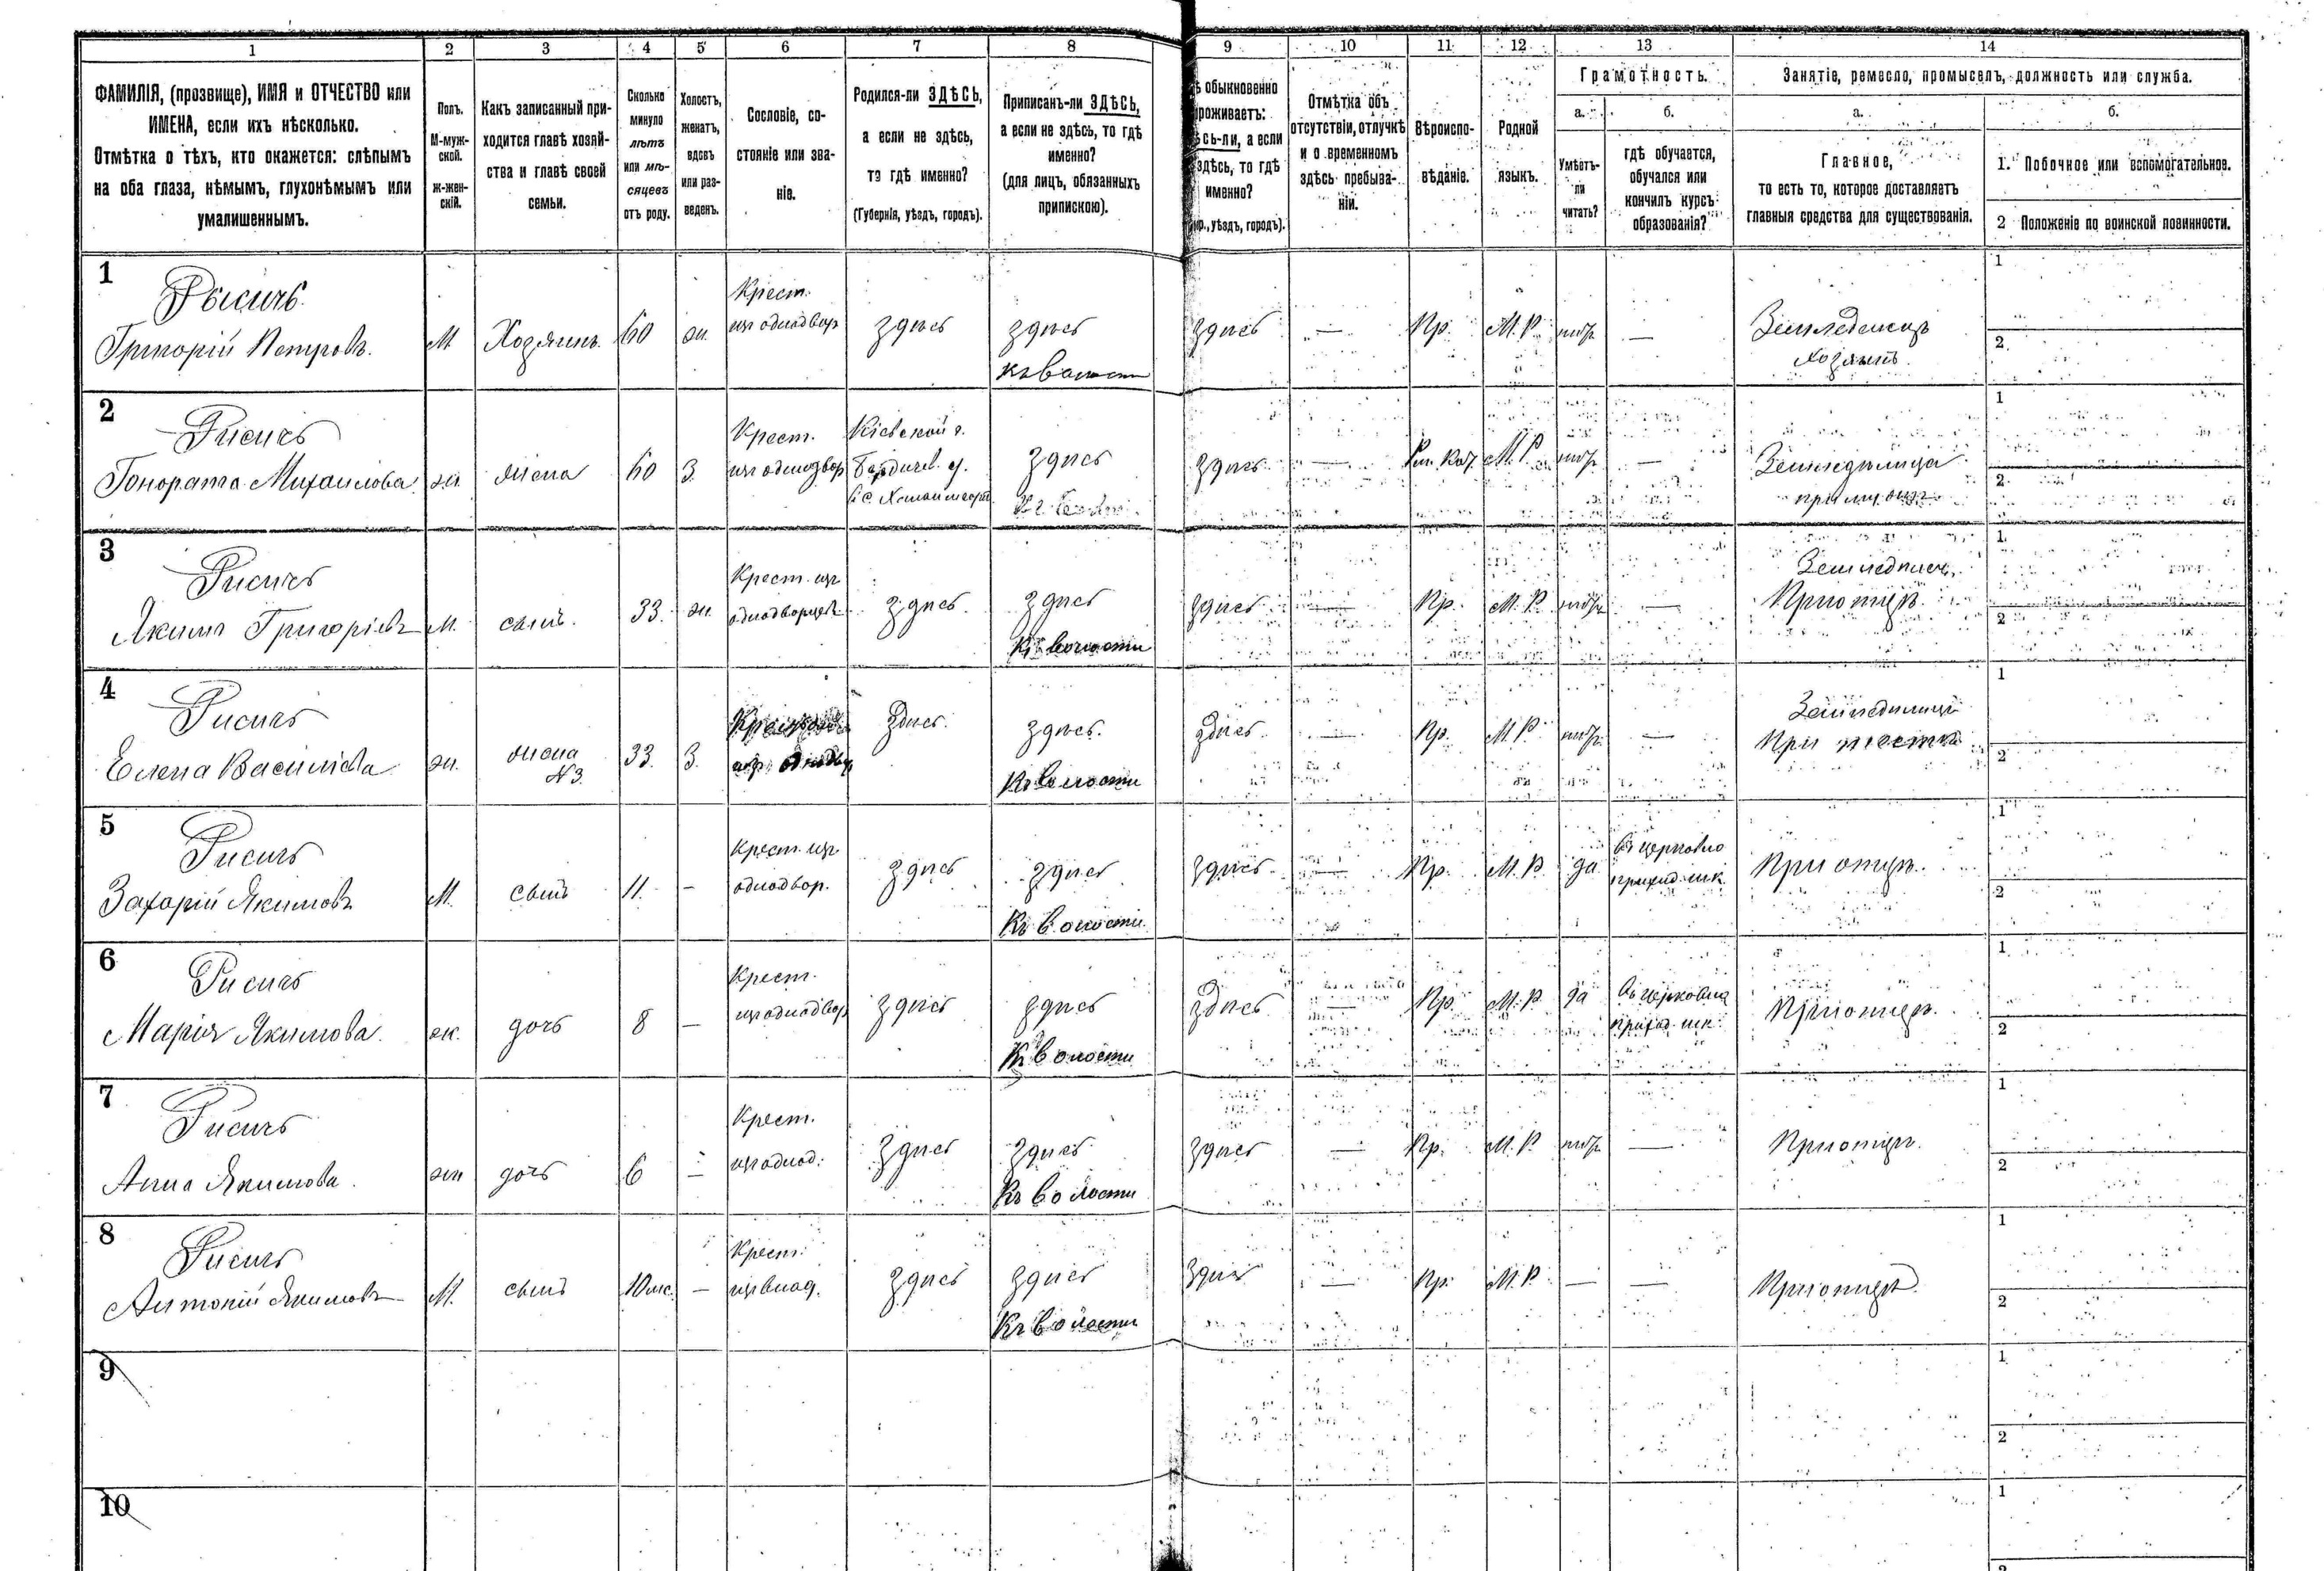 1 2 3 4 5 6 7 8 9 10 11 12 13 14
ФАМИЛІЯ, (прозвище), ИМЯ и ОТЧЕСТВО или
ИМЕНА, если ихъ нѣсколько.
Отмѣтка о тѣхъ, кто окажется: слѣпымъ
на оба глаза, нѣмымъ, глухонѣмымъ или
умалишеннымъ.
Полъ.
М-муж-
ской.
ж-жен-
скій.
Какъ записанный при-
ходится главѣ хозяй-
ства и главѣ своей
семьи.
Сколько
минуло
лѣтъ
или мѣ-
сяцевъ
отъ роду.
Холостъ,
женатъ,
вдовъ
или раз-
веденъ.
Сословіе, со-
стояніе или зва-
ніе.
Родился-ли ЗДѢСЬ,
а если не здѣсь,
то гдѣ именно?
(Губернія, уѣздъ, городъ).
Приписанъ-ли ЗДѢСЬ,
а если не здѣсь, то гдѣ
именно?
(для лицъ, обязанныхъ
припискою).
ѣ обыкновенно
роживаетъ:
ѣсь-ли, а если
здѣсь, то гдѣ
именно?
уѣздъ, городъ).
Отмѣтка объ
отсутствіи, отлучкѣ
и о временномъ
здѣсь пребыва-
ніи.
Вѣроиспо-
вѣданіе.
Родной
языкъ.
Грамотность.
а.
Умѣетъ-
ли
читать?
б.
гдѣ обучается,
обучался или
кончилъ курсъ
образованія?
Занятіе, ремесло, промыселъ, должность или служба.
а.
Главное,
то есть то, которое доставляетъ
главныя средства для существованія.
б.
1. Побочное или вспомогательное.
2 Положеніе по воинской повинности.
1
Рысичъ
Григорій Петровъ.
М. Хозяинъ 60 ж.
Крест.
изъ однодвор
здѣсь
здѣсь
къ волости
здѣсь — Пр. М. Р. нѣтъ —
Земледѣлецъ
хозяинъ
1
2
2
Рисичъ
Гонората Михаилова
ж. жена 60 З.
Крест.
изъ однодвор
Кіевской г.
Бердичев. у.
здѣсь
здѣсь — Рим. Кат. М. Р. нѣтъ —
Земледѣлица
при мужѣ
1
2
3
Рисичъ
Якимъ Григоріевъ
М. сынъ. 33. ж.
Крест. изъ
однодворцевъ
здѣсь.
здѣсь
Къ волости
здѣсь — Пр. М. Р. нѣтъ —
Земледѣлец.
При отцѣ.
1
2
4
Рисичъ
Елена Василіева
ж. жена
№3.
33. З.
здѣсь.
здѣсь.
Къ волости
здѣсь. — Пр. М. Р. нѣтъ —
Земледѣлица
При
1
2
5
Рисичъ
Захарій Якимовъ
М. сынъ 11. —
Крест. изъ
однодвор.
здѣсь
здѣсь
Къ волости
здѣсь — Пр. М. Р. да
въ церковно
приход. шк.
При отцѣ.
1
2
6
Рисичъ
Марія Якимова.
ж. дочь 8 —
Крест.
изъ однодвор
здѣсь
здѣсь
Къ волости
здѣсь — Пр. М. Р. да
въ церковно
приход. шк.
При отцѣ.
1
2
7
Рисичъ
Анна Якимова.
ж дочь 6 —
Крест.
изъ однод.
здѣсь
здѣсь
Къ волости
здѣсь — Пр. М. Р нѣтъ —
При отцѣ.
1
2
8
Рисичъ
Антоній Якимовъ
М. сынъ 10 мс. —
Крест.
здѣсь
здѣсь
Къ волости
здѣсь — Пр. М. Р. — —
При отцѣ.
1
2
9
1
2
10
1